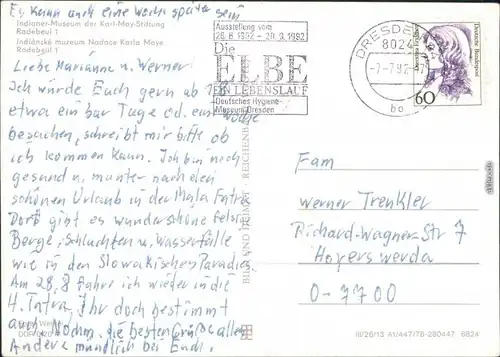 Es kann auch eine Woche später sein
Indianer-Museum der Karl-May-Stiftung
Radebeul 1
Indiánské muzeum Nadace Karla Maye
Radebeul 1
Liebe Marianne u. Werner!
Ich würde Euch gern ab
etwa ein paar Tage od. eine Woche
besuchen, schreibt mir bitte ob
ich kommen kann. Ich bin noch
gesund u. munter nach dem
schönen Urlaub in der Mala Fatra
Dort gibt es wunderschöne Felsen
Berge, Schluchten u. Wasserfälle
wie in den Slowakischen Paradies.
Am 28,8 fahr ich wieder in die
H. Tatra, Ihr doch bestimmt
auch. Nochm. die besten Grüße allen
Andere mündlich bei Euch.
BILD UND HEIMAT REICHENBACH
Ausstellung vom
Die
ELBE
EIN LEBENSLAUF
Deutsches Hygiene-
Museum Dresden
DRESDEN
8024
bo
Deutsche Bundespost
60
Fam
Werner Trenkler
Richard-Wagner-Str 7
Hoyerswerda
O-7700
III/26/13 A1/447/78-280447 6824